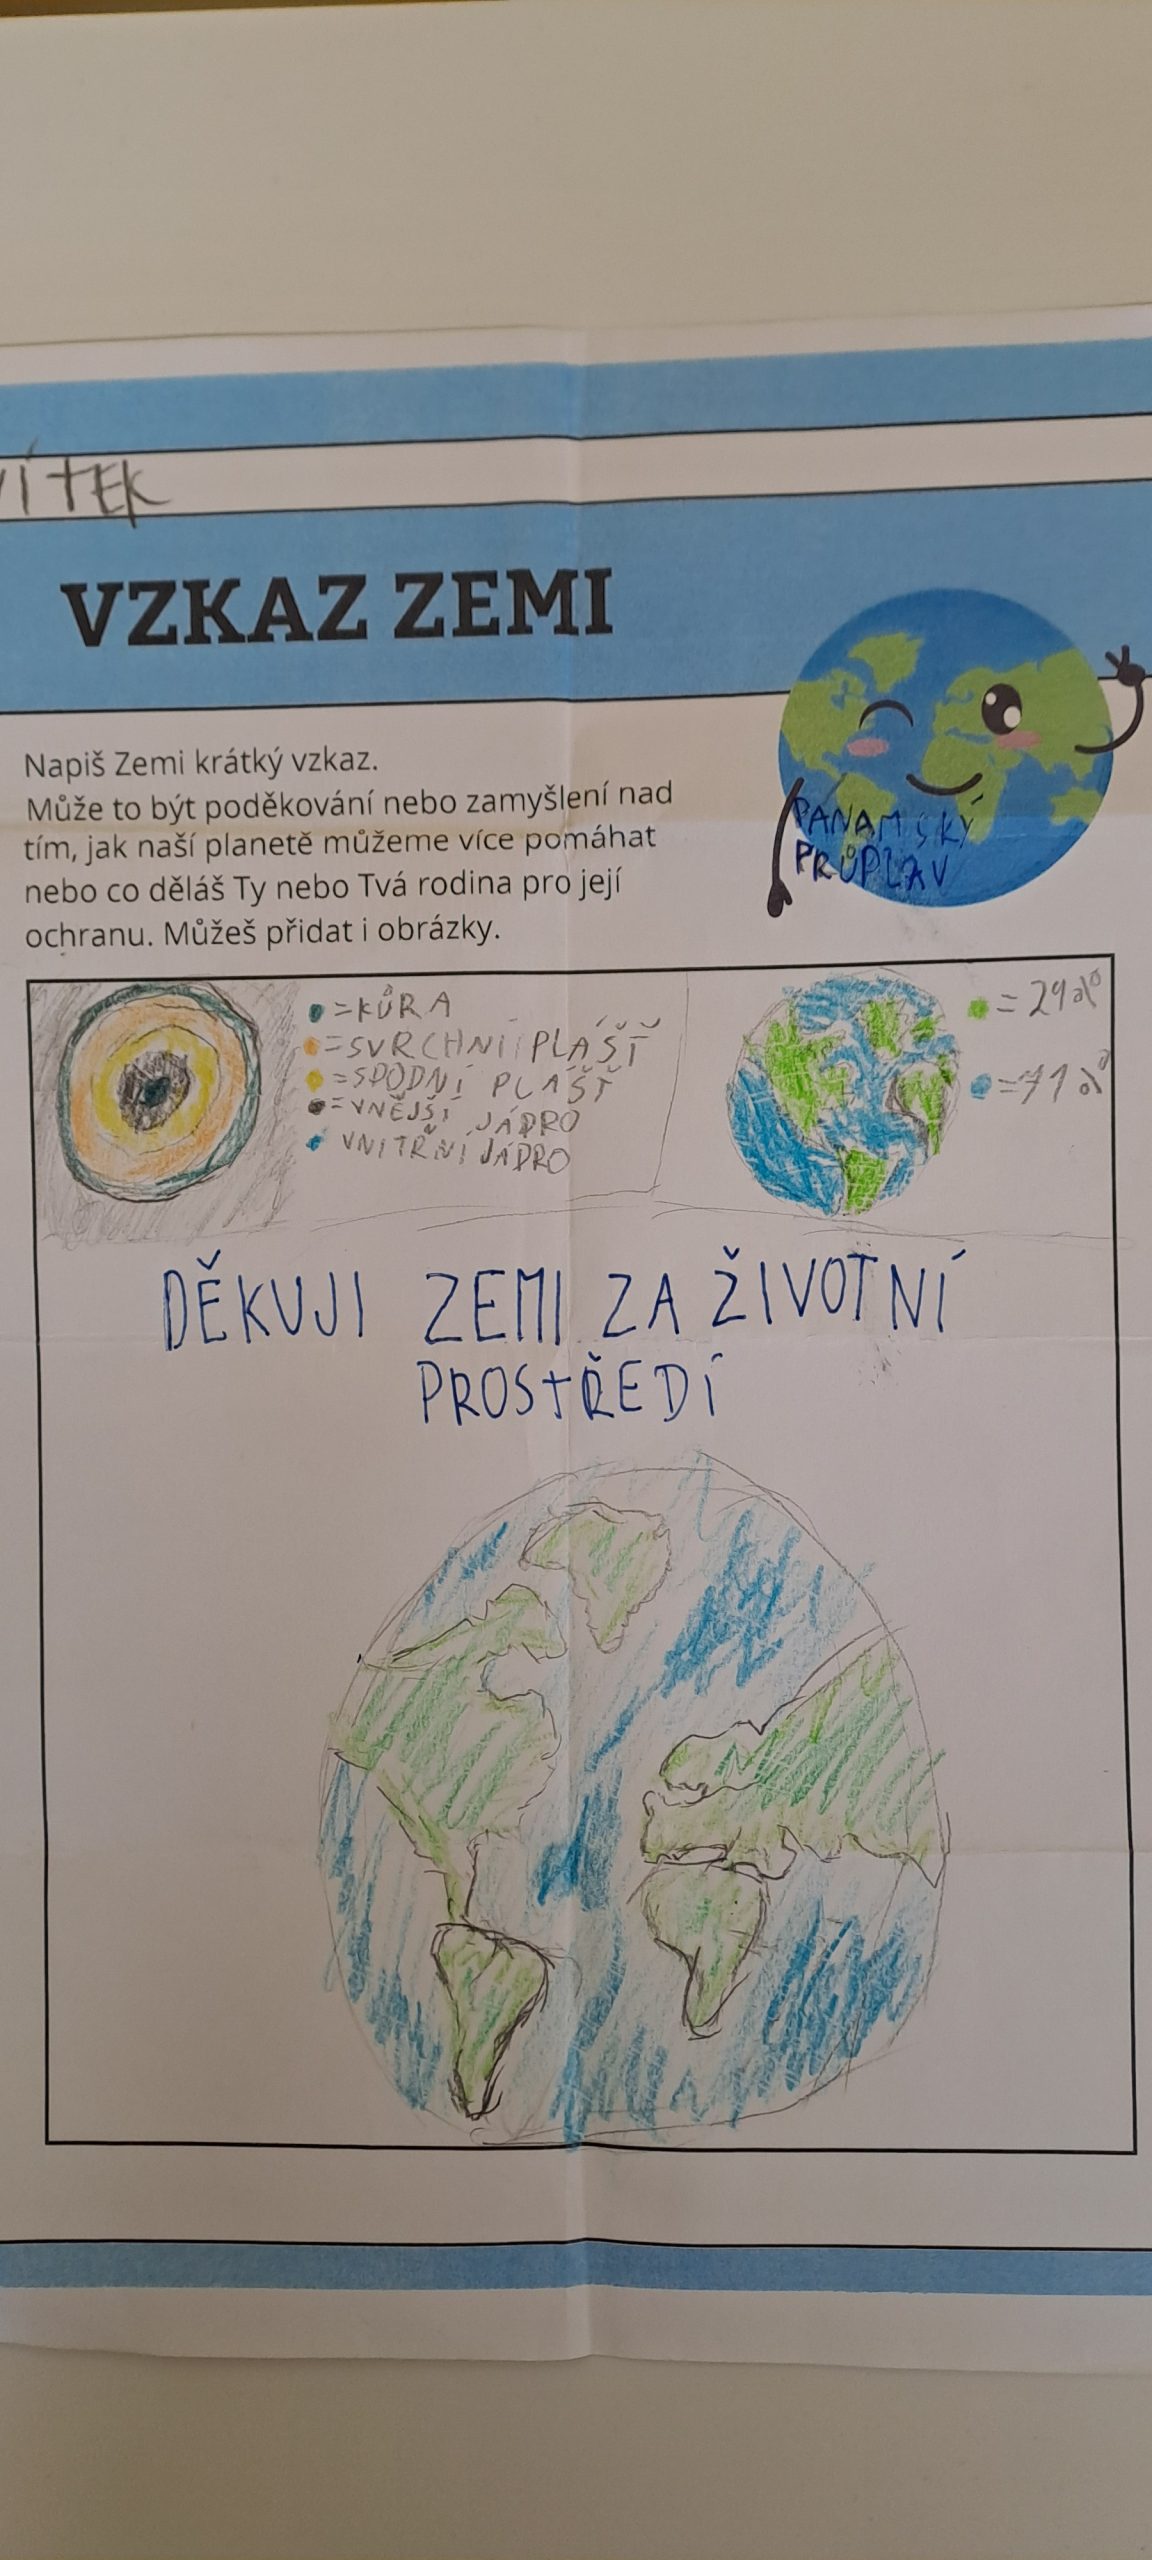 VÍTEK
VZKAZ ZEMI
Napiš Zemi krátký vzkaz.
Může to být poděkování nebo zamyšlení nad
tím, jak naší planetě můžeme více pomáhat
nebo co děláš Ty nebo Tvá rodina pro její
ochranu. Můžeš přidat i obrázky.
PANAMSKÝ
PRŮPLAV
=KŮRA
=SVRCHNÍ PLÁŠŤ
=SPODNÍ PLÁŠŤ
=VNĚJŠÍ JÁDRO
VNITŘNÍ JÁDRO
=29%
=71%
DĚKUJI ZEMI ZA ŽIVOTNÍ
PROSTŘEDÍ